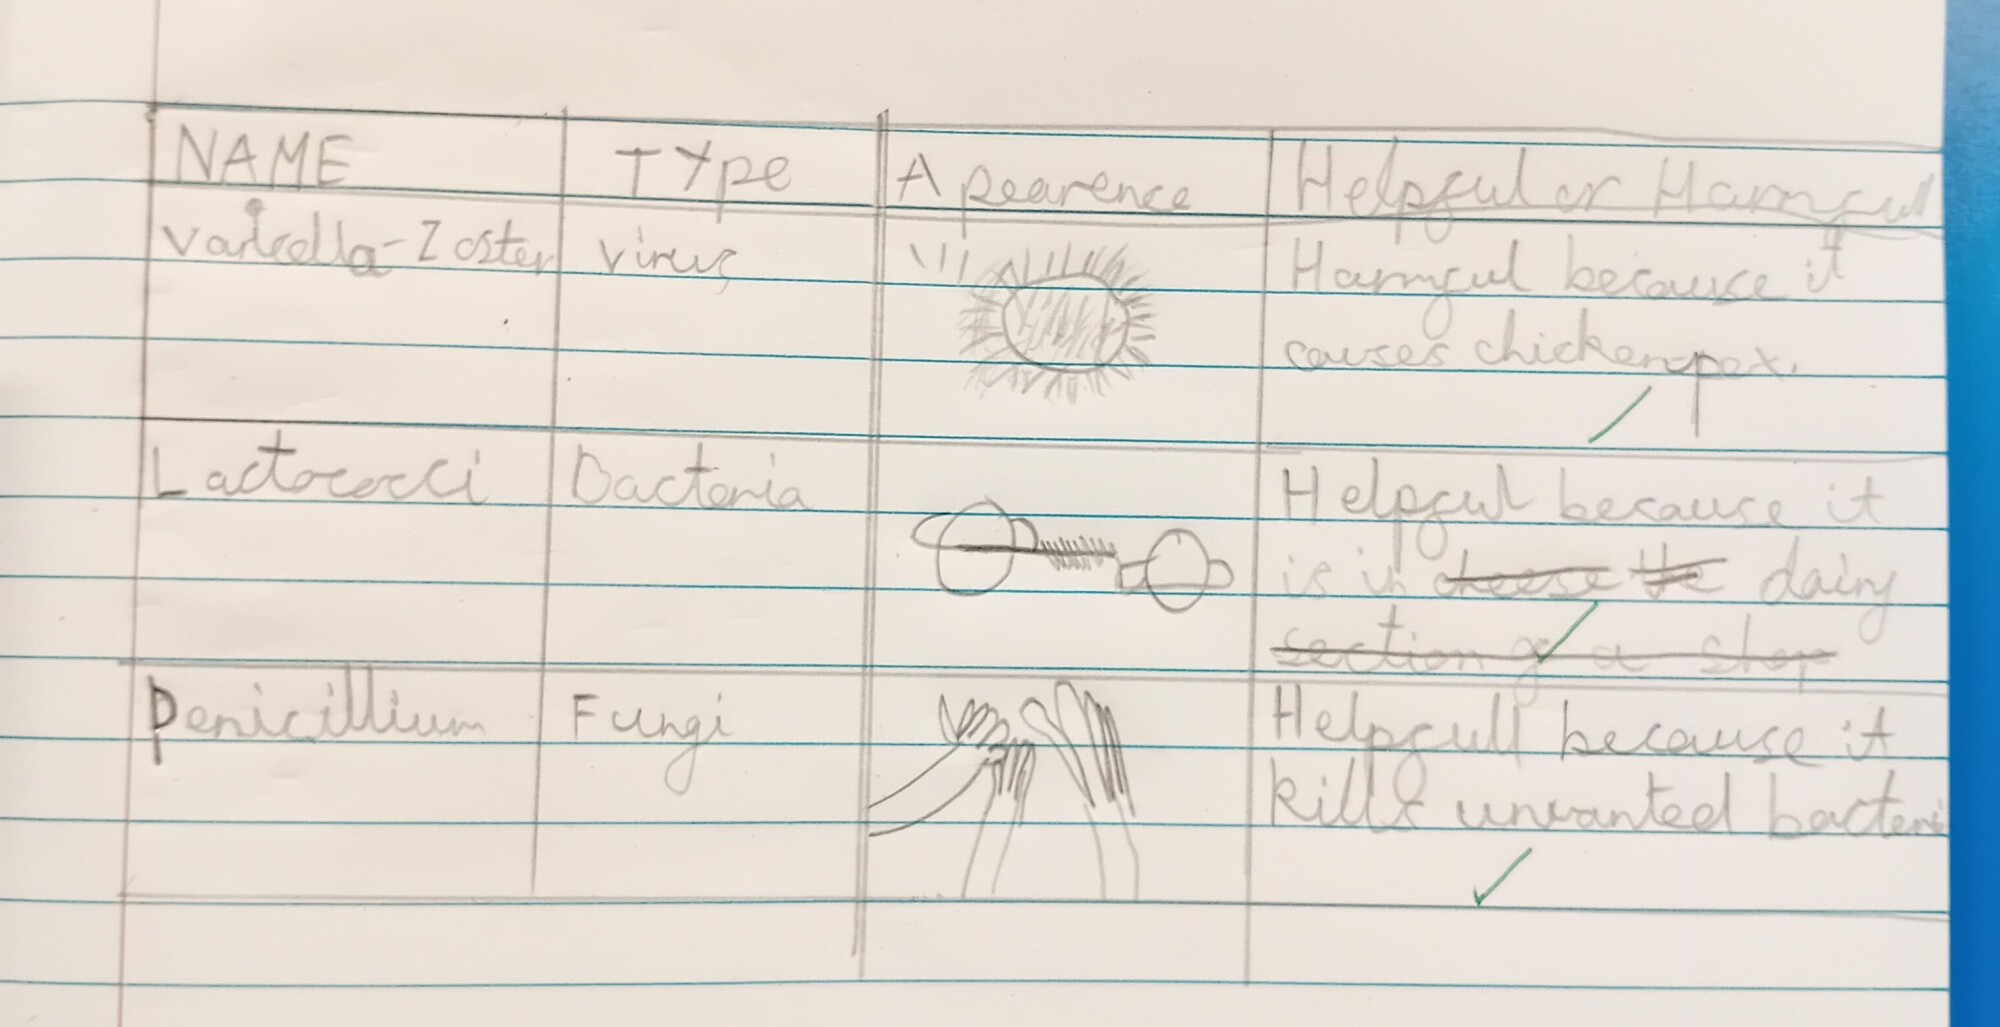 NAME Type Apearence Helpful or Harmful
Varicella-Zoster virus Harmful because it
causes chicken-pox.
Lactococci Bacteria Helpful because it
is in cheese the dairy
section of a shop
Penicillium Fungi Helpfull because it
kills unwanted bacteri